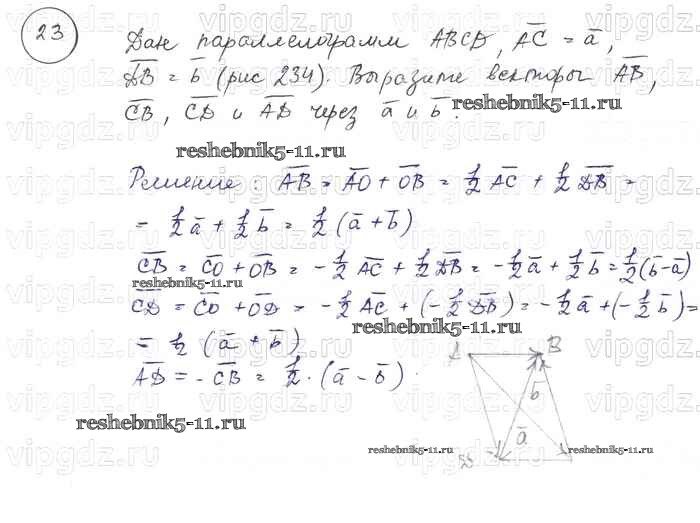 23
Дан параллелограмм ABCD, AC̅ = a̅,
D̅B̅ = b̅ (рис 234). Выразите векторы A̅B̅,
C̅B̅, C̅D̅ и A̅D̅ через a̅ и b̅.
reshebnik5-11.ru
reshebnik5-11.ru
Решение: A̅B̅ = A̅O̅ + O̅B̅ = 1/2 A̅C̅ + 1/2 D̅B̅ =
= 1/2 a̅ + 1/2 b̅ = 1/2 (a̅ + b̅)
C̅B̅ = C̅O̅ + O̅B̅ = - 1/2 A̅C̅ + 1/2 D̅B̅ = - 1/2 a̅ + 1/2 b̅ = 1/2 (b̅ - a̅)
reshebnik5-11.ru
C̅D̅ = C̅O̅ + O̅D̅ = - 1/2 A̅C̅ + (- 1/2 D̅B̅) = - 1/2 a̅ + (- 1/2 b̅) =
reshebnik5-11.ru
= 1/2 (a̅ + b̅)
A̅D̅ = - C̅B̅ = 1/2 · (a̅ - b̅)
A B
b̅
a̅
D
reshebnik5-11.ru
reshebnik5-11.ru
reshebnik5-11.ru
vipgdz.ru